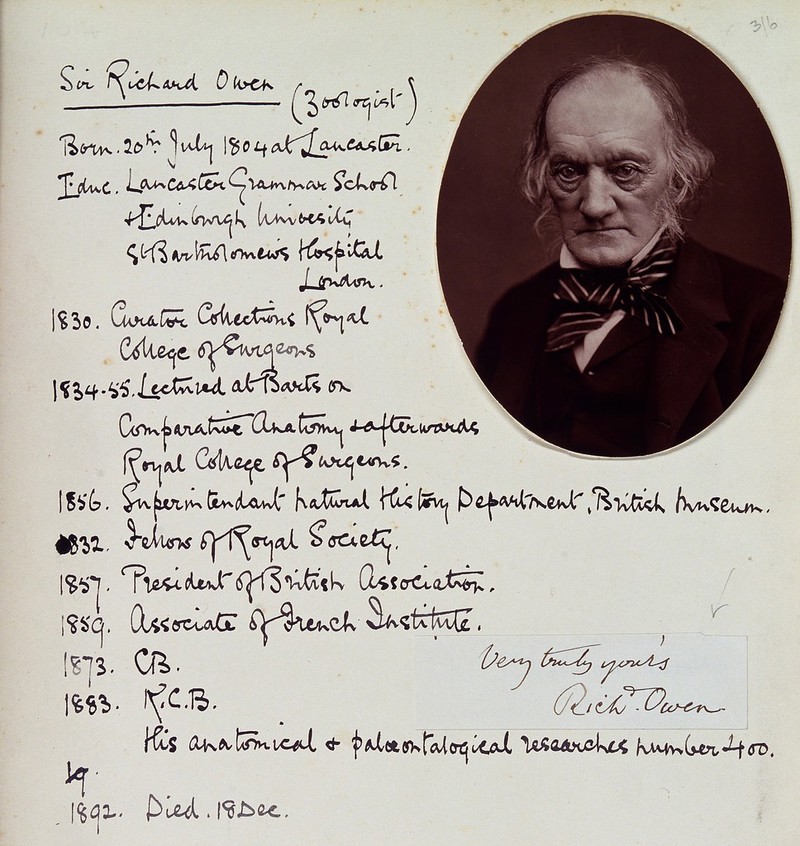 3/6
Sir Richard Owen
(Zoologist)
Born. 20th July 1804 at Lancaster.
Educ. Lancaster Grammar School
& Edinburgh Univesity
St Bartholomew's Hospital
London.
1830. Curator Collections Royal
College of Surgeons
1834-55. Lectured at Barts on
Comparative Anatomy & afterwards
Royal College of Surgeons.
1856. Superintendant Natural History Department, British Museum.
1832. Fellow of Royal Society.
1857. President of British Association.
1859. Associate of French Institute.
1873. CB.
1883. K.C.B.
Very truly yours
Richd. Owen
His anatomical & palæontalogical researches number 400.
1892. Died. 18 Dec.